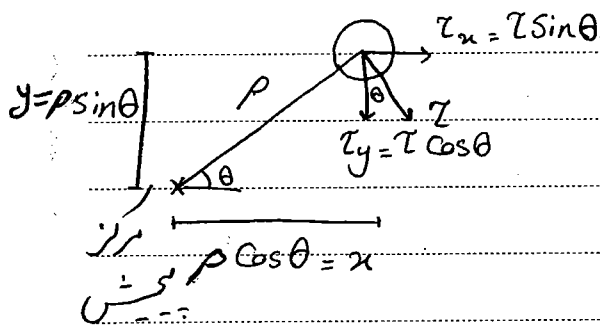 τₓ = τ sinθ
y = ρ sinθ
ρ
θ
τ
τ_y = τ cosθ
θ
مرکز
ρ cosθ = x
پیچش